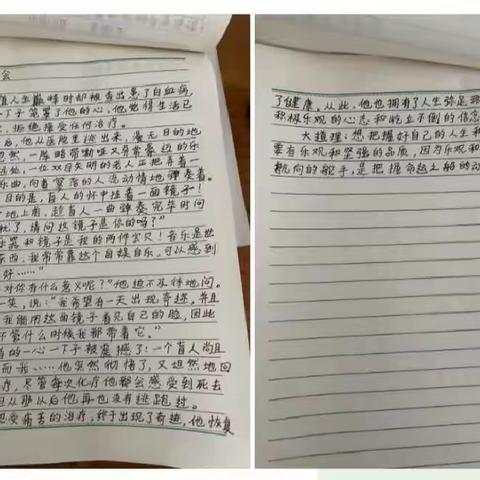 会
值人生巅峰时却被查出患了白血病,
一下子笼罩了他的心,他觉得生活已
拒绝接受任何治疗。
后,他从医院里逃出来,漫无目的地
忽然,一阵略带嘶哑又异常豪迈的乐
一位双目失明的老人正把弄着一
乐曲,向着寥落的人流动情地弹奏着。
目的是,盲人的怀中挂着一面镜子!
地上前,趁盲人一曲弹奏完毕时问
扰了,请问这镜子是你的吗?"
乐器和镜子是我的两件宝贝!音乐是世
东西,我常常靠这个自娱自乐,可以感到
好……"
对你有什么意义呢?"他迫不及待地问。
一笑,说:"我希望有一天出现奇迹,并且
我能用这面镜子看见自己的脸,因此
不管什么时候我都带着它。"
的一心一下子被震撼了:一个盲人尚且
而我……他突然彻悟了,又坦然地回
疗,尽管每次化疗他都会感受到死去
但从那以后他再也没有逃跑过。
忍受痛苦的治疗,终于出现了奇迹,他恢复
了健康。从此,他也拥有了人生弥足
积极乐观的心态和屹立不倒的信念
大道理:想把握好自己的人生
要有乐观和坚强的品质,因为乐观和
航向的舵手,是把握命运之船的动